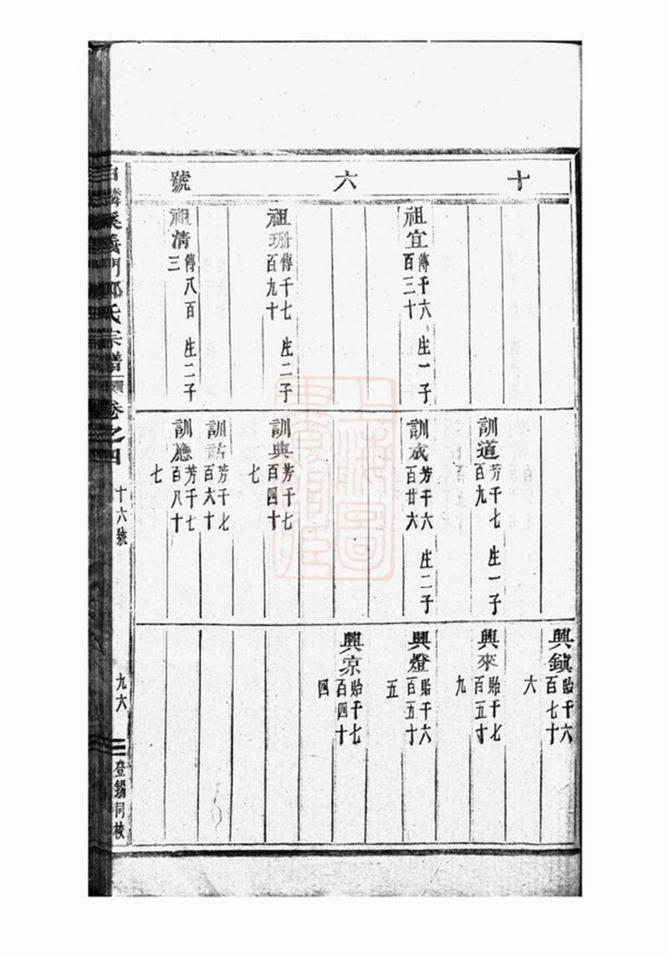 十六號
祖宜 傳千六百三十 生一子
祖珊 傳千七百九十 生二子
祖清 傳八百三 生二子
訓道 芳千七百九 生一子
訓成 芳千六百廿六 生二子
訓典 芳千七百四十七
訓 芳千七百六十
訓應 芳千七百八十七
興鎮 貽千六百七十六
興來 貽千七百五十九
興燈 貽千六百五十五
興 貽千七百四十四
白麟溪義門鄭氏宗譜 卷之四 十六號 九六 登錫同校
上海圖書館藏